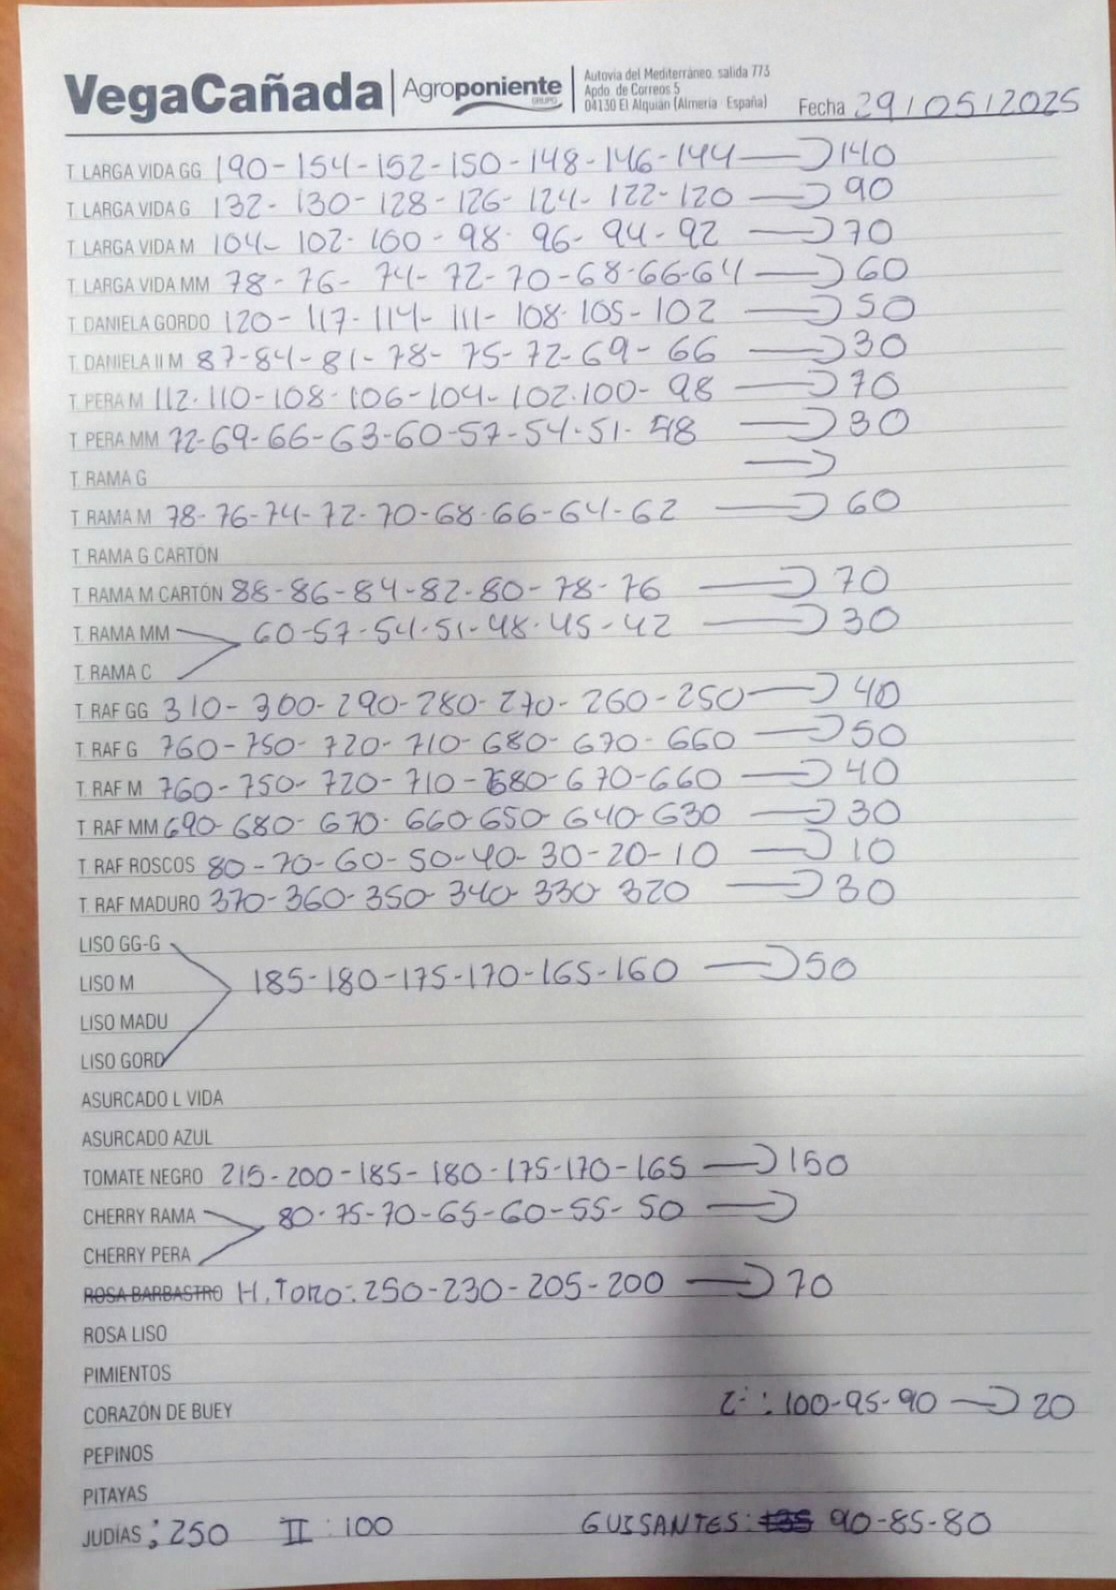 VegaCañada | Agroponiente GRUPO | Autovía del Mediterráneo, salida 773
Apdo. de Correos 5
04130 El Alquián (Almería España)
Fecha 29/05/2025
T. LARGA VIDA GG 190-154-152-150-148-146-144 → 140
T. LARGA VIDA G 132-130-128-126-124-122-120 → 90
T. LARGA VIDA M 104-102-100-98-96-94-92 → 70
T. LARGA VIDA MM 78-76-74-72-70-68-66-64 → 60
T. DANIELA GORDO 120-117-114-111-108-105-102 → 50
T. DANIELA II M 87-84-81-78-75-72-69-66 → 30
T. PERA M 112-110-108-106-104-102-100-98 → 70
T. PERA MM 72-69-66-63-60-57-54-51-48 → 30
T. RAMA G →
T. RAMA M 78-76-74-72-70-68-66-64-62 → 60
T. RAMA G CARTÓN
T. RAMA M CARTÓN 88-86-84-82-80-78-76 → 70
T. RAMA MM 60-57-54-51-48-45-42 → 30
T. RAMA C
T. RAF GG 310-300-290-280-270-260-250 → 40
T. RAF G 760-750-720-710-680-670-660 → 50
T. RAF M 760-750-720-710-680-670-660 → 40
T. RAF MM 690-680-670-660-650-640-630 → 30
T. RAF ROSCOS 80-70-60-50-40-30-20-10 → 10
T. RAF MADURO 370-360-350-340-330-320 → 30
LISO GG-G
LISO M 185-180-175-170-165-160 → 50
LISO MADU
LISO GORD
ASURCADO L VIDA
ASURCADO AZUL
TOMATE NEGRO 215-200-185-180-175-170-165 → 150
CHERRY RAMA 80-75-70-65-60-55-50 →
CHERRY PERA
ROSA BARBASTRO H. Toro: 250-230-205-200 → 70
ROSA LISO
PIMIENTOS
CORAZÓN DE BUEY : 100-95-90 → 20
PEPINOS
PITAYAS
JUDÍAS: 250 II: 100 GUISANTES: 90-85-80